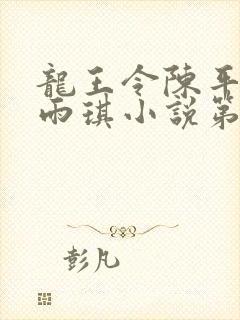 龍王令陳平
雨琪小說第
彭凡